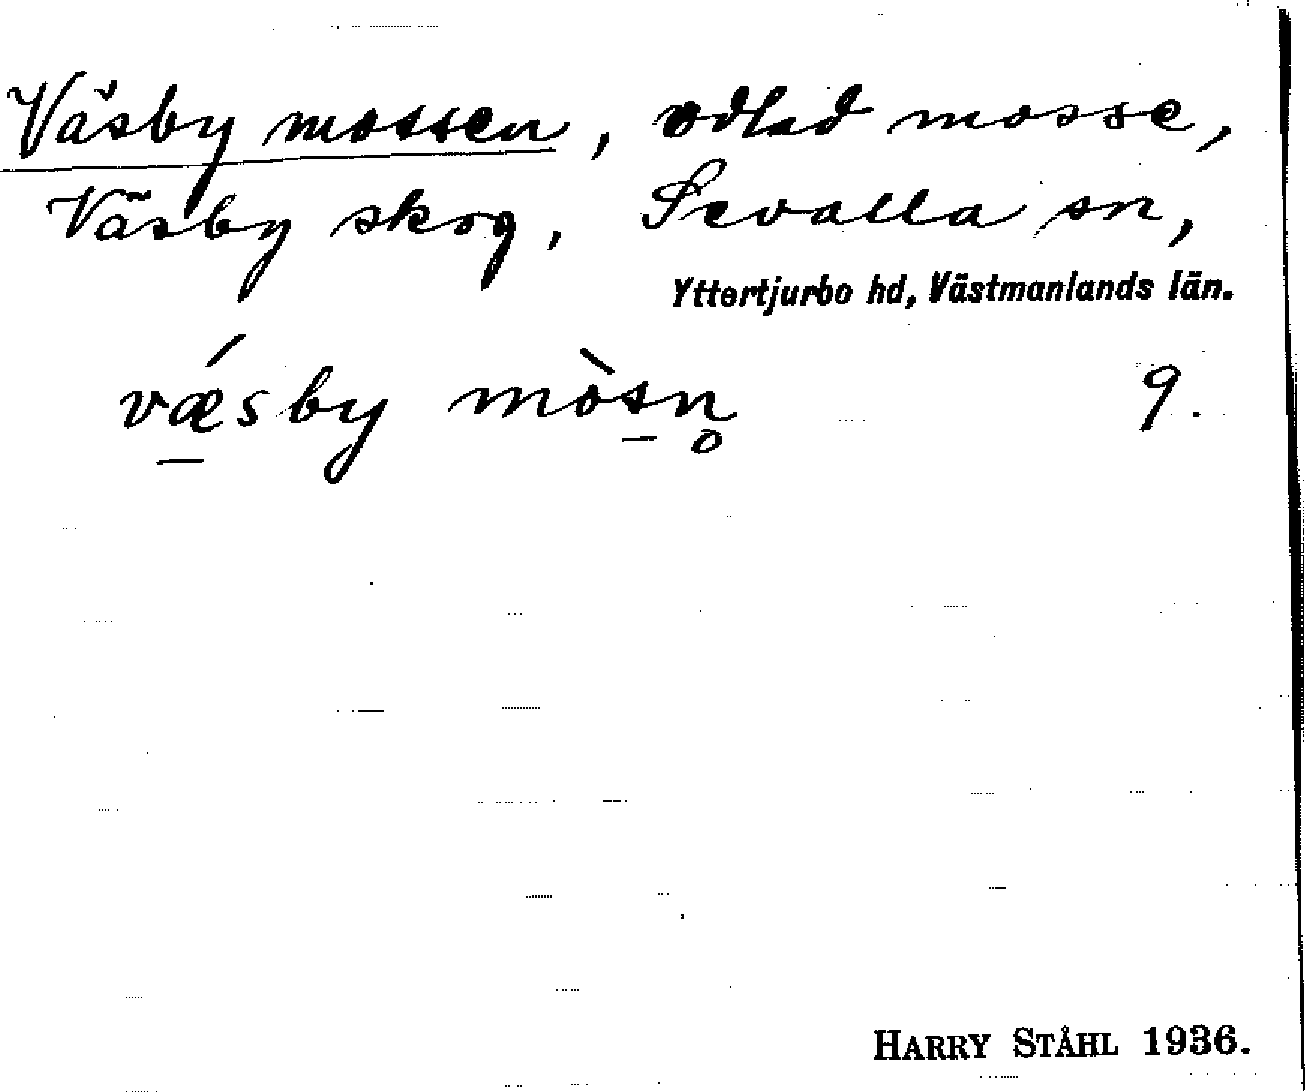 Väsby mossen, odlad mosse,
Väsby skog, Sevalla sn,
Yttertjurbo hd, Västmanlands län.
vǽ̱sby mòs̱n̥ 9.
HARRY STÅHL 1936.